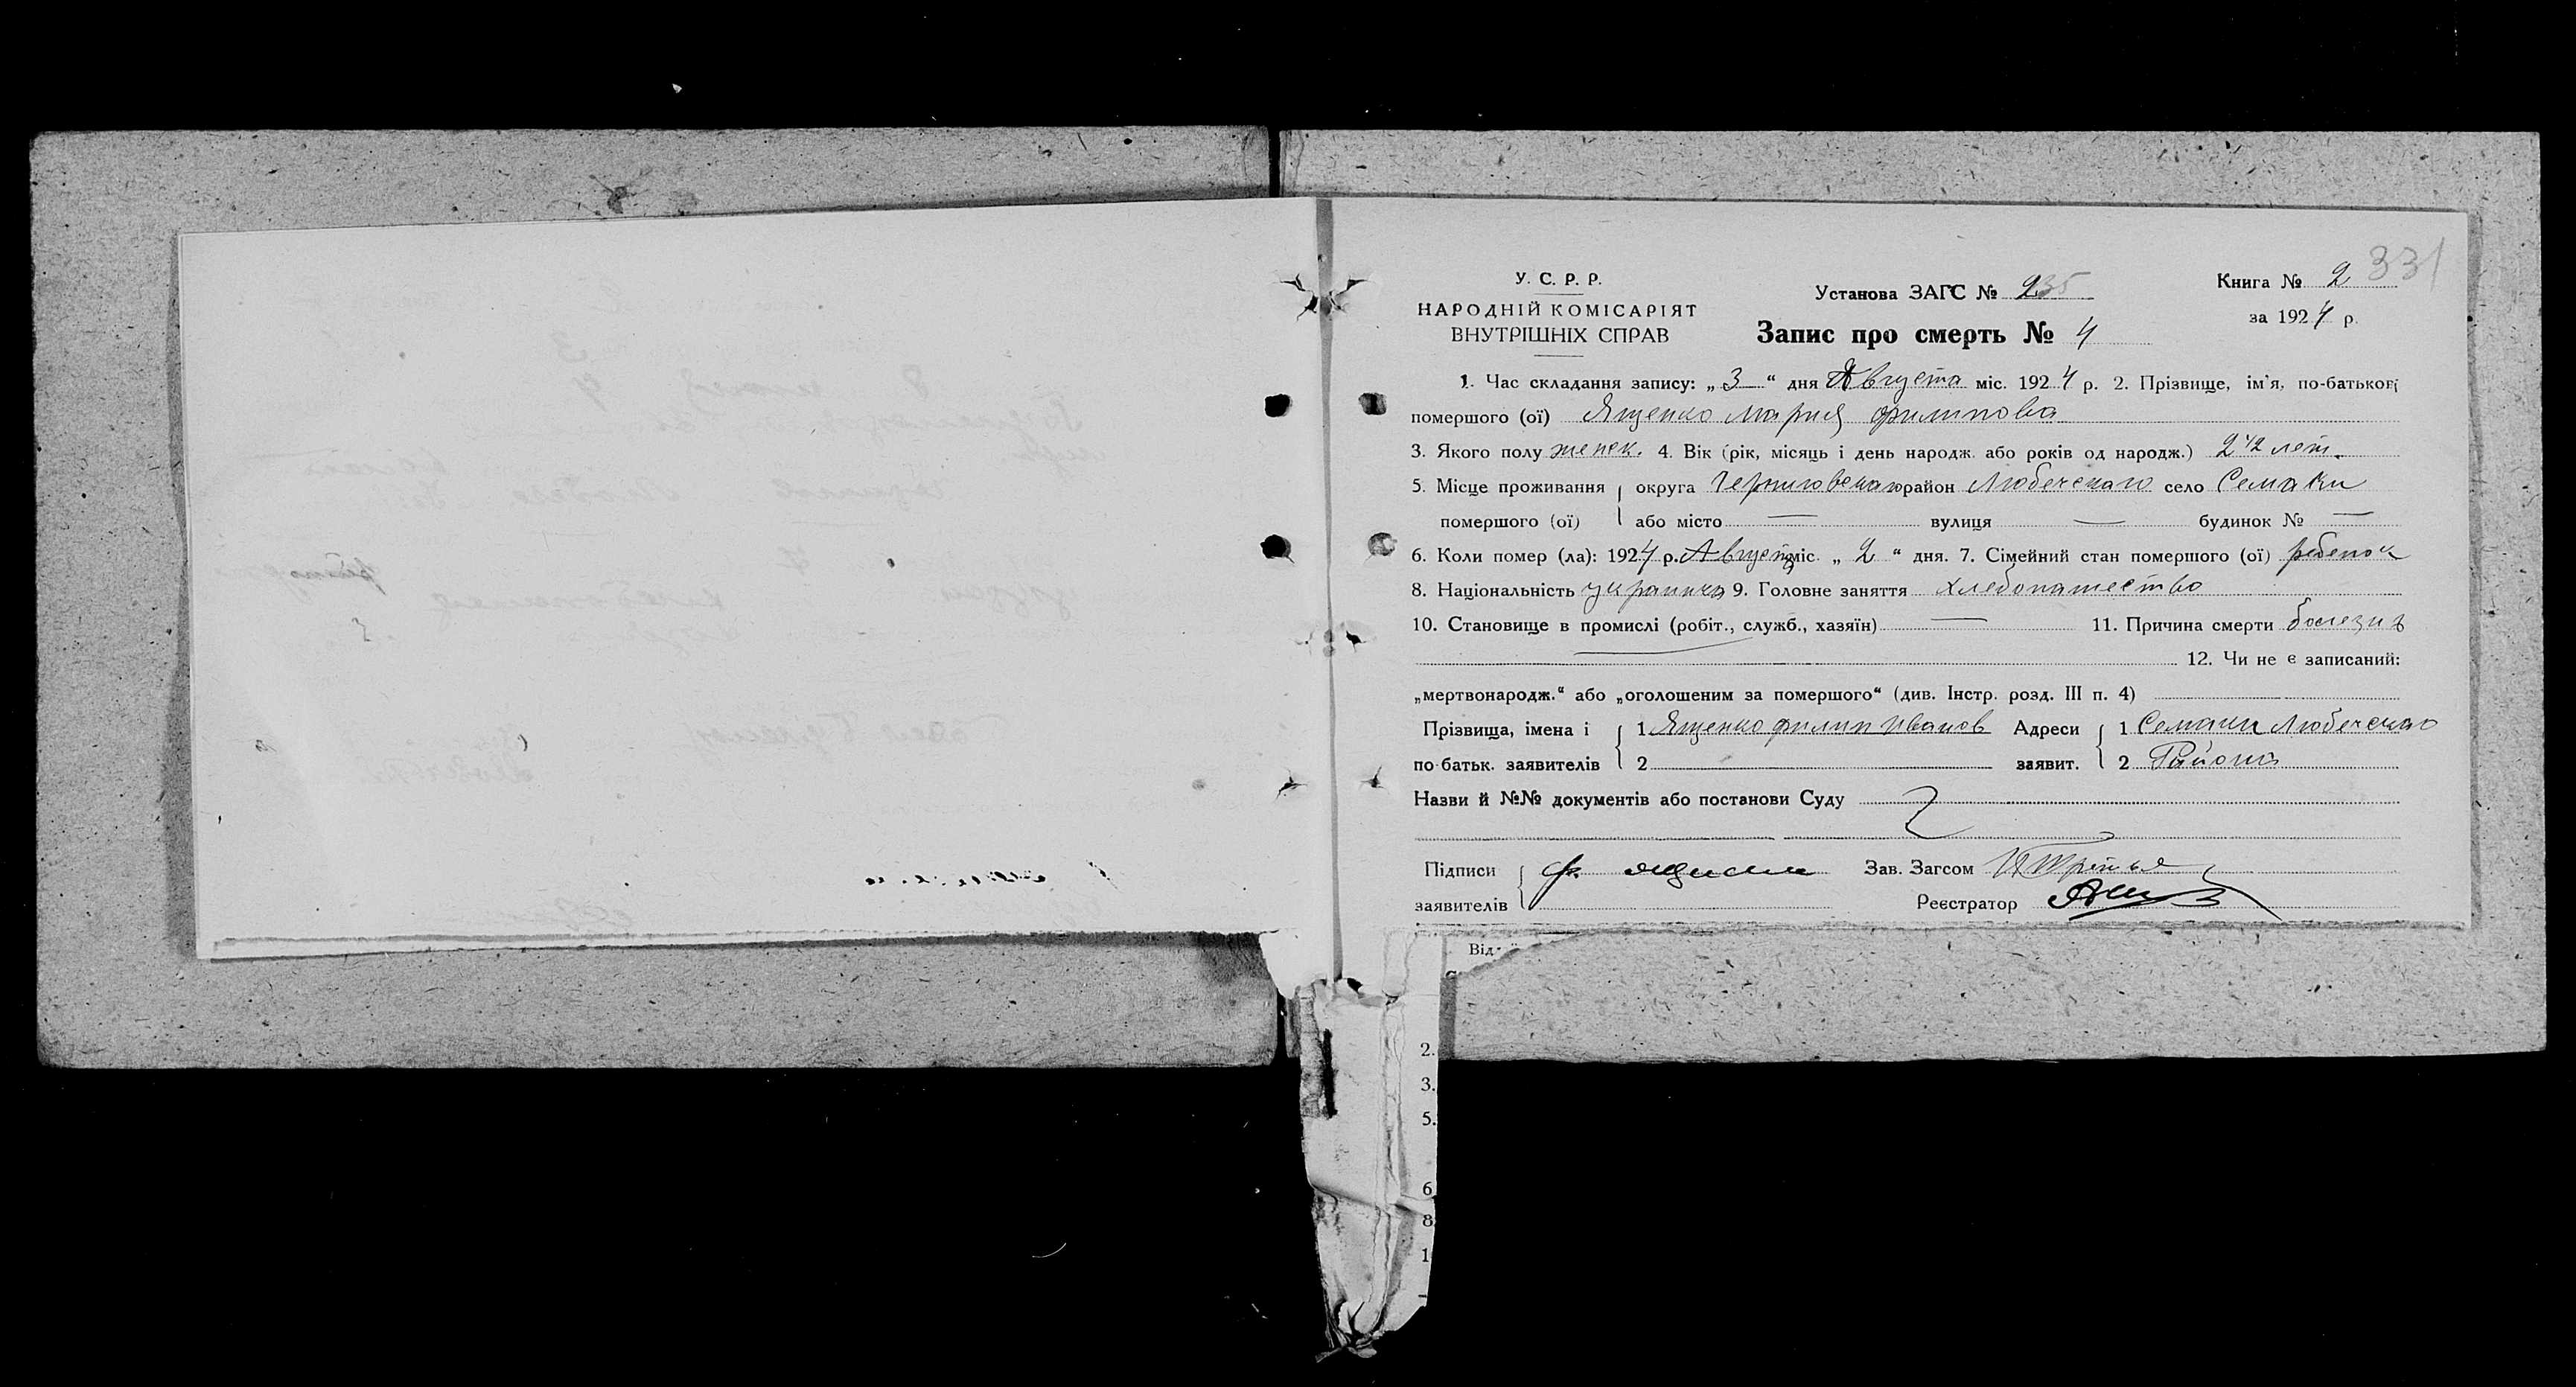 331
У. С. Р. Р.
НАРОДНІЙ КОМІСАРІЯТ
ВНУТРІШНІХ СПРАВ
Установа ЗАГС № 235
Запис про смерть № 4
Книга № 2
за 1924 р.
1. Час складання запису: „3“ дня Августа міс. 1924 р. 2. Прізвище, ім'я, по-батькові
помершого (ої) Ященко Мария Филипова
3. Якого полу женск. 4. Вік (рік, місяць і день народж. або років од народж.) 2 1/2 лет.
5. Місце проживання округа Черниговскаго район Любечскаго село Семаки
помершого (ої) або місто — вулиця — будинок № —
6. Коли помер (ла): 1924 р. Августа міс. „2“ дня. 7. Сімейний стан помершого (ої) ребенок
8. Національність украинка 9. Головне заняття хлебопашество
10. Становище в промислі (робіт., служб., хазяїн) — 11. Причина смерти болезнь
12. Чи не є записаний:
„мертвонародж.“ або „оголошеним за помершого“ (див. Інстр. розд. III п. 4)
Прізвища, імена і 1 Ященко Филип Иванов Адреси 1 Семаки Любечскаго
по-батьк. заявителів 2 заявит. 2 Района
Назви й №№ документів або постанови Суду
Підписи Ф. Зав. Загсом
заявителів Реєстратор
Від
2.
3.
5.
6
8
1